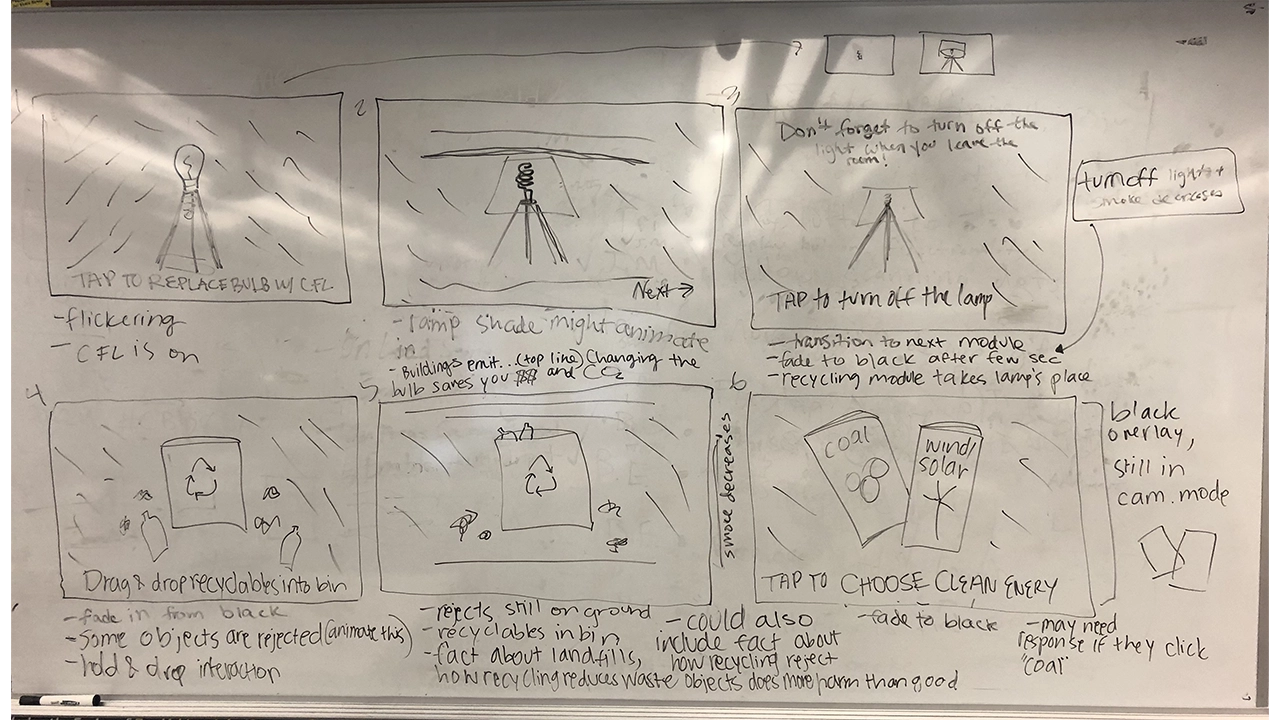 1
TAP TO REPLACE BULB W/ CFL
- flickering
- CFL is on
2
Next →
- lamp shade might animate
in
- Buildings emit...(top line) Changing the
bulb saves you $$ and CO2
3
Don't forget to turn off the
light when you leave the
room!
TAP to turn off the lamp
turn off light +
smoke decreases
- transition to next module
- fade to black after few sec
- recycling module takes lamp's place
4
Drag & drop recyclables into bin
- fade in from black
- Some objects are rejected (animate this)
- hold & drop interaction
5
smoke decreases
- rejects still on ground
- recyclables in bin
- fact about landfills,
how recycling reduces waste
- could also
include fact about
how recycling reject
objects does more harm than good
6
coal
wind/
solar
TAP TO CHOOSE CLEAN ENERY
- fade to black
- may need
response if they click
"coal"
black
overlay,
still in
cam. mode